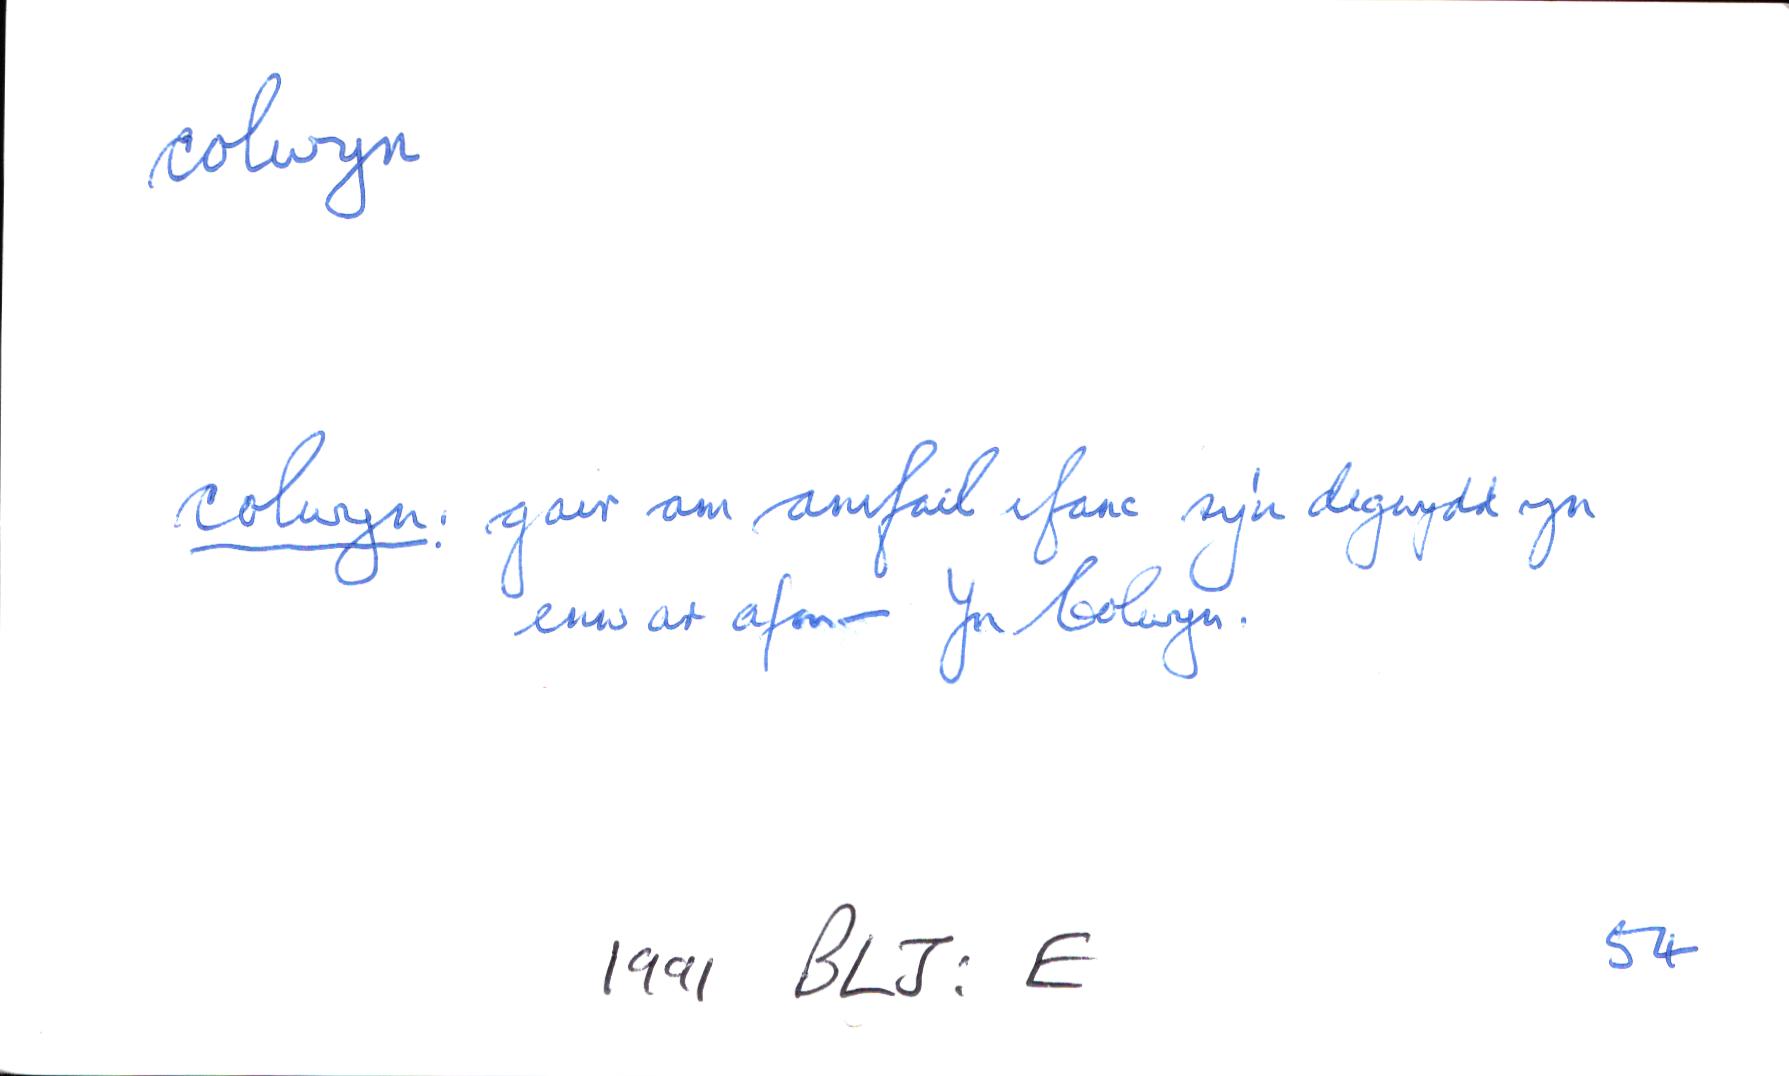 colwyn
colwyn: gair am anifail ifanc sy'n digwydd yn
enw ar afon — Yn Colwyn.
1991 BLJ: E 54